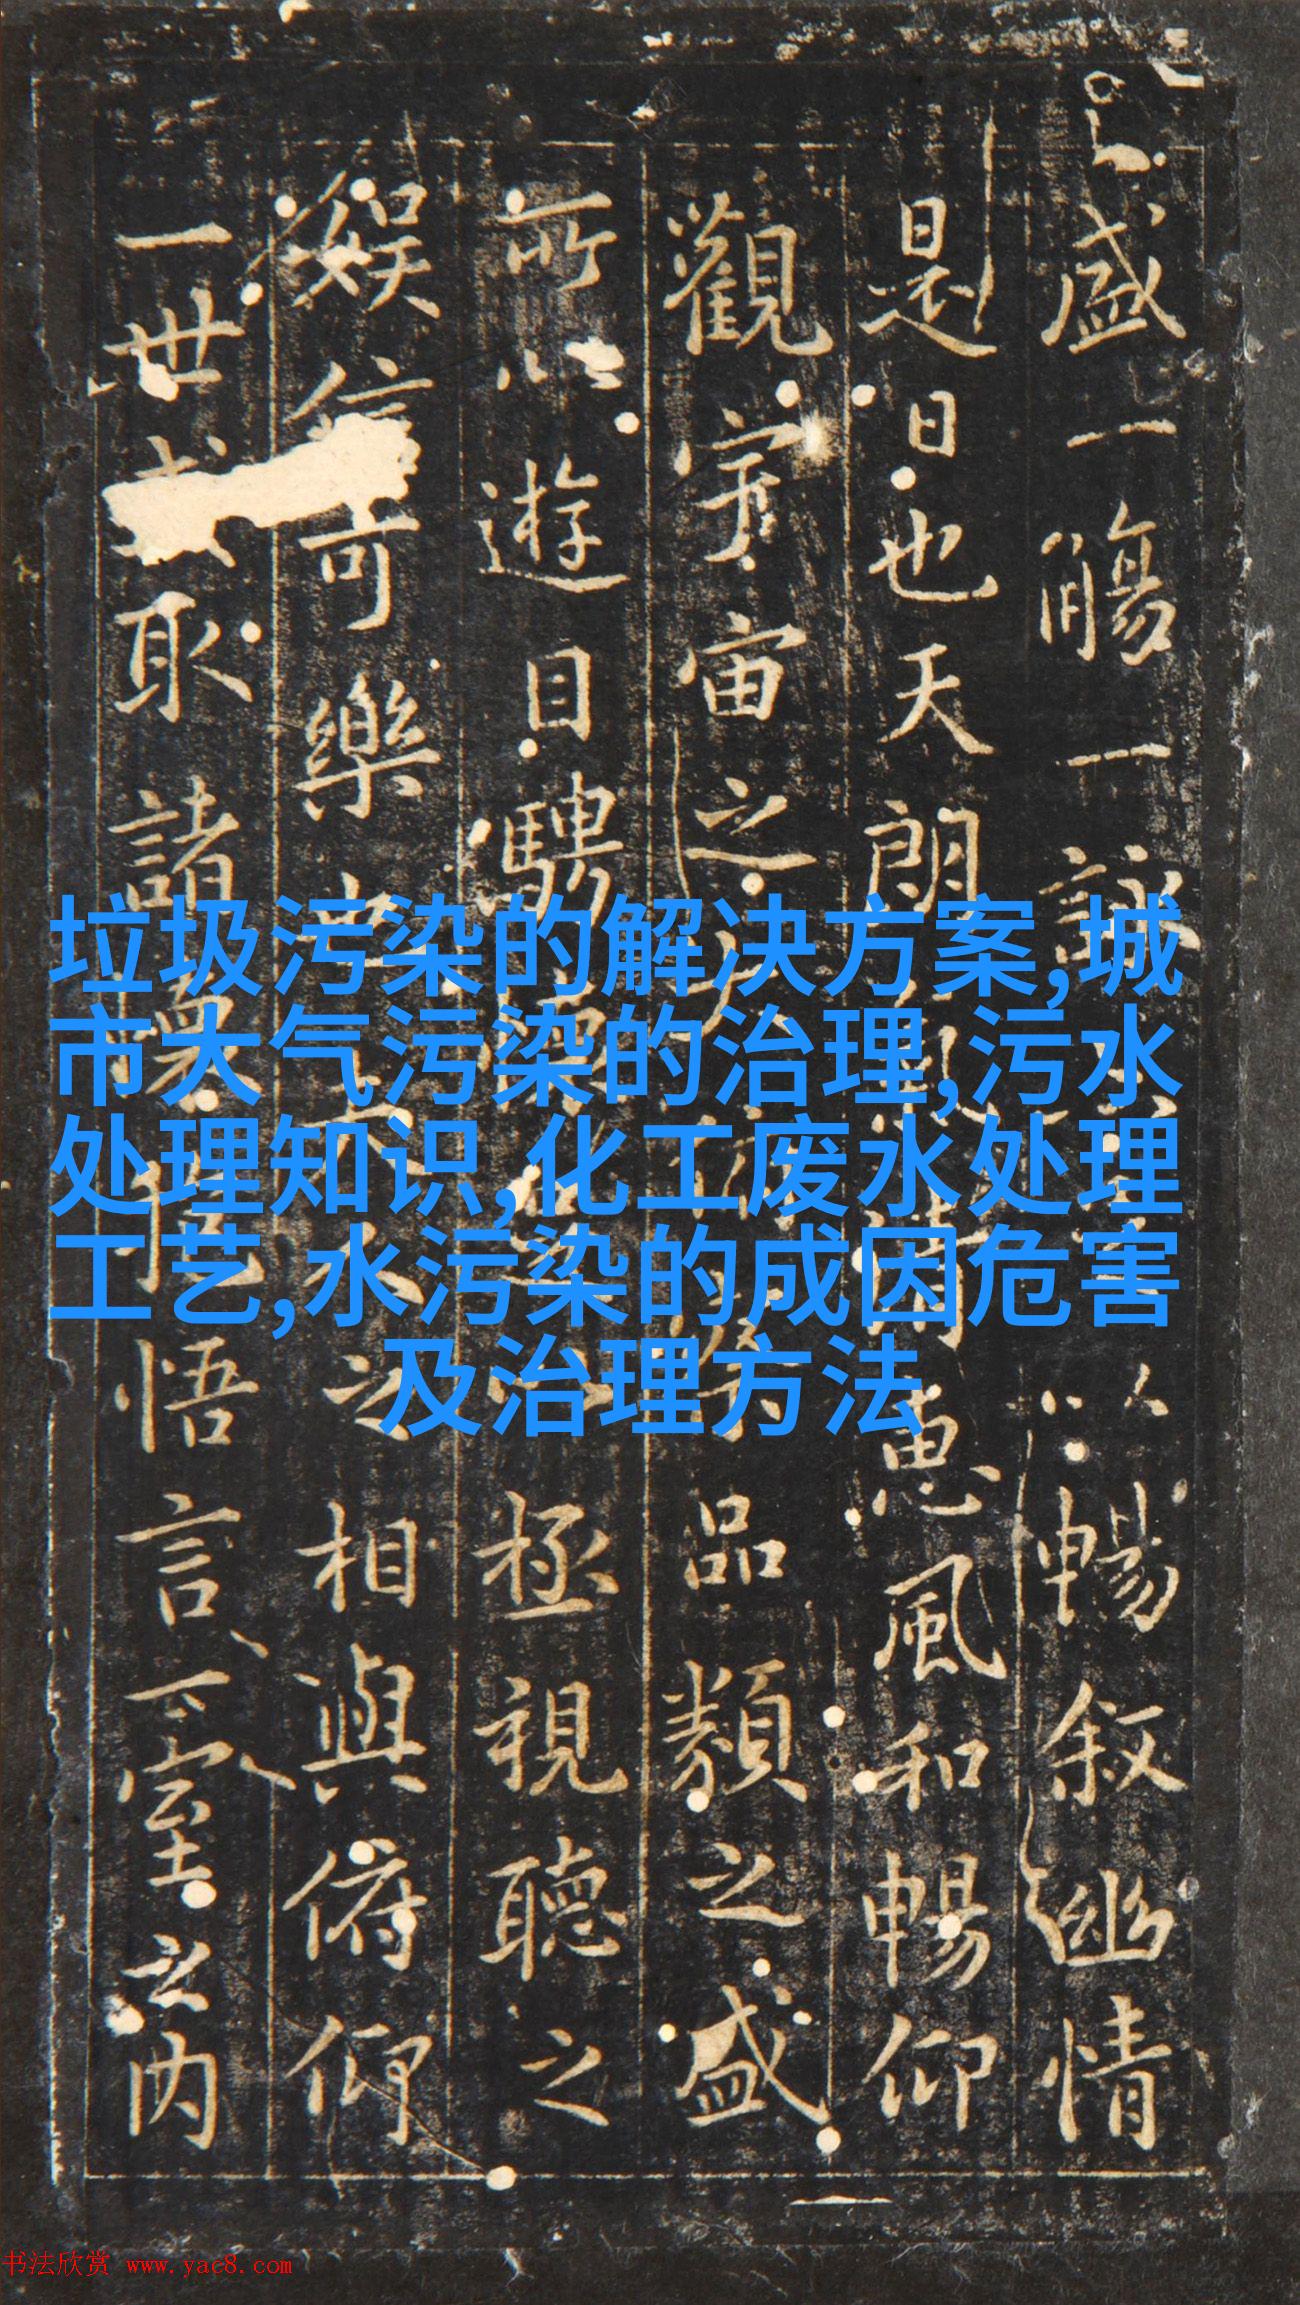 盛一觴一詠以暢叙幽情
是日也天朗惠風和暢仰
觀宇宙之品類之盛
所以遊目騁極視聽之
娛信可樂之相與俯仰
一世取諸悟言一室之內
垃圾污染的解决方案,城
市大气污染的治理,污水
处理知识,化工废水处理
工艺,水污染的成因危害
及治理方法
书法欣赏 www.yac8.com